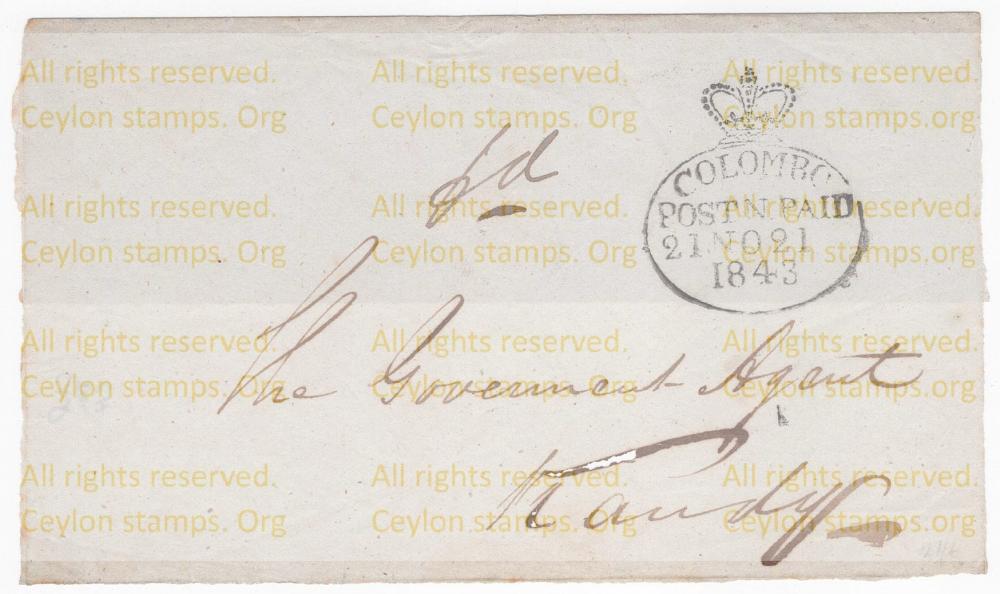 All rights reserved. All rights reserved. All rights reserved.
Ceylon stamps. Org Ceylon stamps. Org Ceylon stamps. Org
COLOMBO
POST N PAID
21 NO 21
1843
All rights reserved. All rights reserved. All rights reserved.
Ceylon stamps. Org Ceylon stamps. Org Ceylon stamps. Org
The Goverment Agent
All rights reserved. All rights reserved. All rights reserved.
Ceylon stamps. Org Ceylon stamps. Org Ceylon stamps. Org
Kandy
All rights reserved. All rights reserved. All rights reserved.
Ceylon stamps. Org Ceylon stamps. Org Ceylon stamps. Org